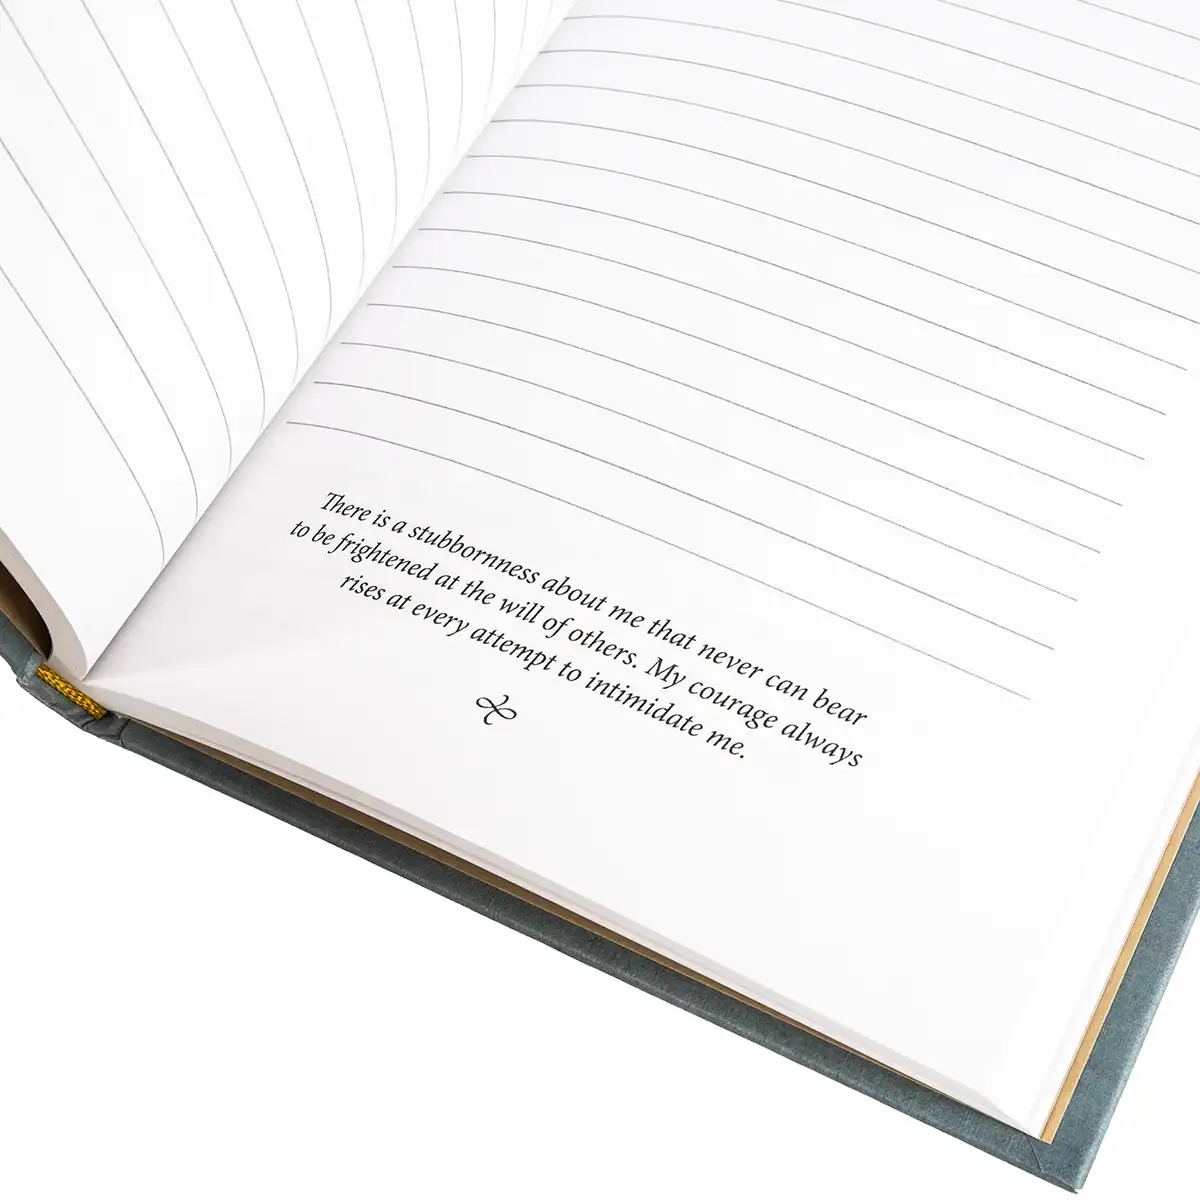 There is a stubbornness about me that never can bear
to be frightened at the will of others. My courage always
rises at every attempt to intimidate me.